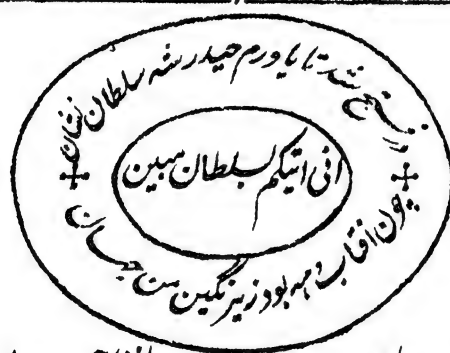 در فتح شد تا یاورم حیدر شه سلطان نشان
انی اتیکم بسلطان مبین
چون افتاب و مه بود زیر نگین من جهان